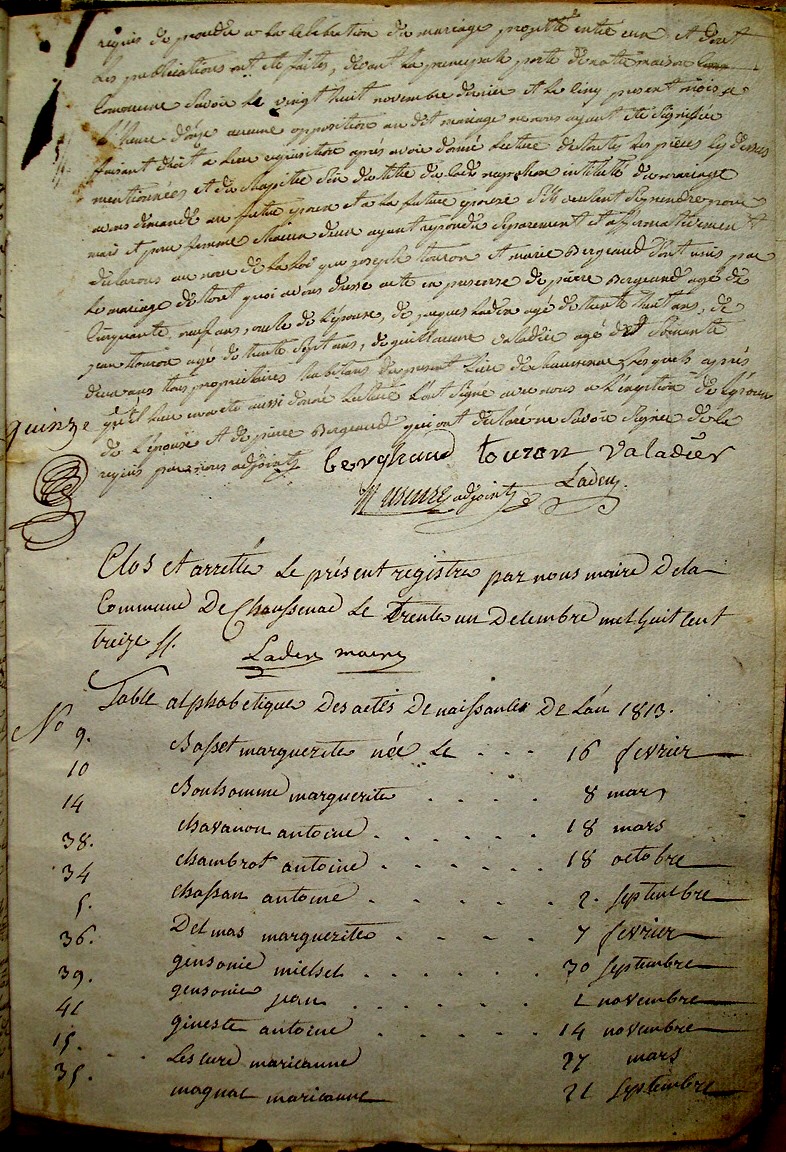 requis de procéder a la celebration du mariage projetté entre eux et dont
les publications ont ete faites, devant la principale porte de notre maison
Commune Savoir Le vingt huit novembre dernier et Le cinq present mois a
L'heure d'onze aucune opposition au dit mariage ne nous ayant été signifiée
faisant droit a Leur requisition après avoir donné Lecture de toutes les pieces cy dessus
mentionnées et du chapitre Six du titre du Code napoleon intitulé du mariage
avons demandé au futur epoux et a La future epouse S'ils veulent Se prendre pour
mari et pour femme chacun d'eux ayant repondu Separement et affirmativement
declarons au nom de La Loi que joseph touron et marie Bergeaud Sont unis par
Le mariage de tout quoi avons dressé acte en presence de pierre Bergeaud agé de
Cinquante neuf ans, oncle de L'epouse, de jaques Laden agé de trente huit ans, de
jean touron agé de trente Sept ans, de guillaume valadier agé de Soixante
deux ans tous proprietaires habitans du present Lieu de chaussenac Lesquels après
qu'il Leur en a été aussi donné Lecture L'ont Signé avec nous a L'exeption de L'epoux
quinze
de L'epouse et de pierre Bergeaud qui ont declaré ne Savoir Signer de ce
requis par nous adjoint
Berghaud touron Valadier
adjoint Laden.
Clos et arretté Le présent registre par nous maire De la
Commune De Chaussenac Le trente un Decembre mil huit cent
treize
Laden maire
Table alphabetique Des actes De naissantes De L'an 1813.
No
9. Basset marguerite née Le . . . 16 fevrier
10 Bonhomme marguerite . . . . 8 mars
14 chavanon antoine . . . . . 18 mars
38. chambrot antoine . . . . . . 18 octobre
34 chassan antoine . . . . . 2. Septembre
5. Delmas marguerite . . . . 7 fevrier
36. gensonie michel . . . . . . 30 Septembre
39. gensonie jean . . . . . . 1 novembre
41 gineste antoine . . . . . 14 novembre
15. . . Lescure marieanne 27 mars
35. magnac marieanne 21 Septembre